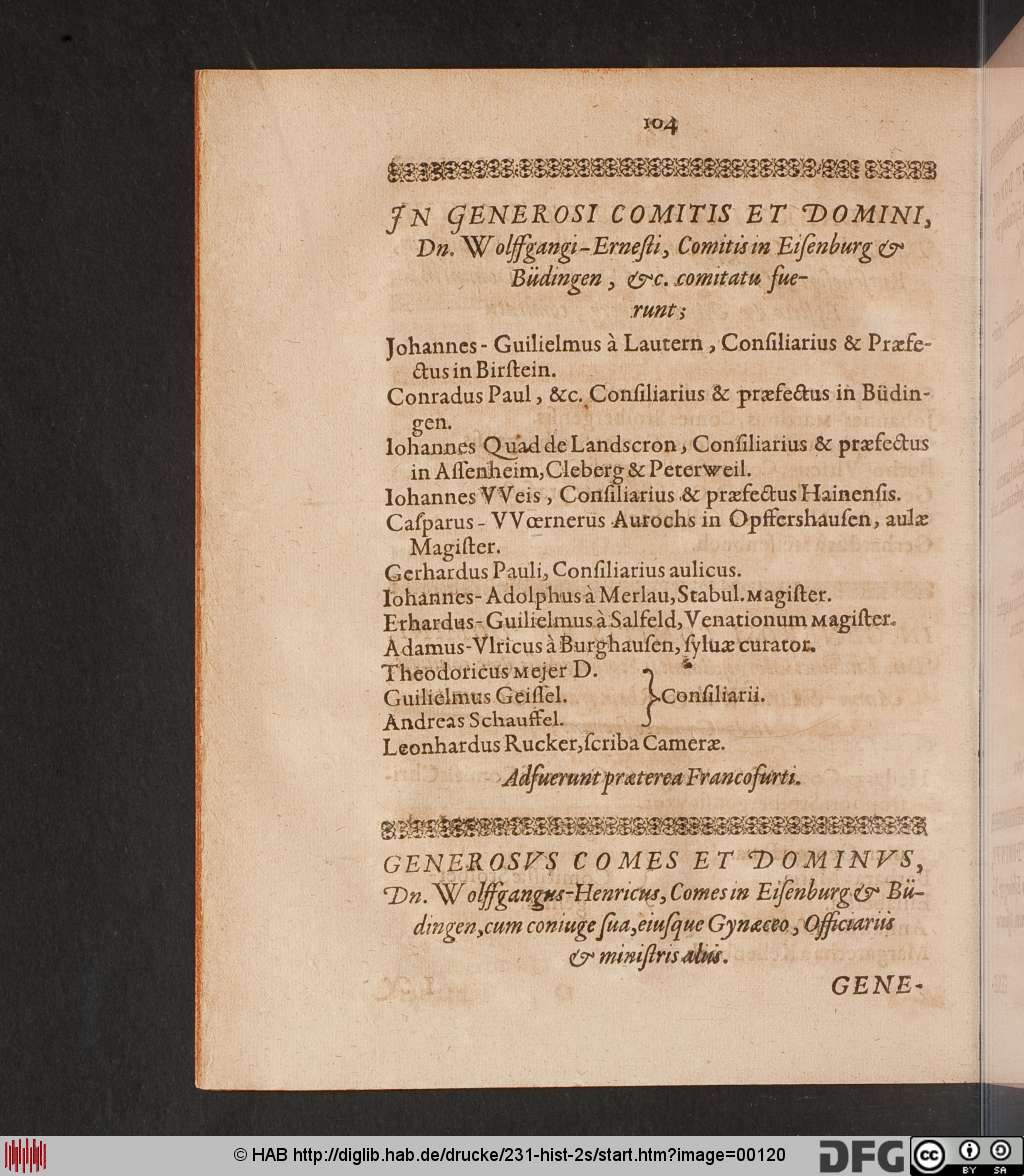 104
IN GENEROSI COMITIS ET DOMINI,
Dn. Wolffgangi-Erneſti, Comitis in Eiſenburg &
Büdingen, &c. comitatu fue-
runt;
Johannes-Guilielmus à Lautern, Conſiliarius & Præfe-
ctus in Birſtein.
Conradus Paul, &c. Conſiliarius & præfectus in Büdin-
gen.
Iohannes Quad de Landscron, Conſiliarius & præfectus
in Aſſenheim, Cleberg & Peterweil.
Iohannes VVeis, Conſiliarius & præfectus Hainenſis.
Caſparus-VVœrnerus Aurochs in Opffershauſen, aulæ
Magiſter.
Gerhardus Pauli, Conſiliarius aulicus.
Iohannes-Adolphus à Merlau, Stabul. Magiſter.
Erhardus-Guilielmus à Salfeld, Venationum Magiſter.
Adamus-Vlricus à Burghauſen, ſyluæ curator.
Theodoricus Mejer D.
Guilielmus Geiſſel. } Conſiliarii.
Andreas Schauffel.
Leonhardus Rucker, ſcriba Cameræ.
Adfuerunt præterea Francofurti.
GENEROSVS COMES ET DOMINVS,
Dn. Wolffgangus-Henricus, Comes in Eiſenburg & Bü-
dingen, cum coniuge ſua, eiuſque Gynæceo, Officiariis
& miniſtris aliis.
GENE-
© HAB http://diglib.hab.de/drucke/231-hist-2s/start.htm?image=00120
DFG
cc
BY SA